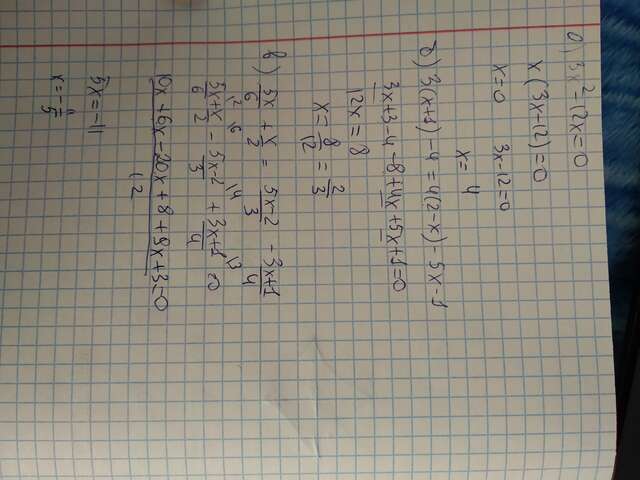 а) 3x² - 12x = 0
x(3x-12) = 0
x=0 3x-12=0
x = 4
б) 3(x+1) - 4 = 4(2-x) - 5x-1
3x+3-4-8+4x+5x+1=0
12x = 8
x = 8/12 = 2/3
в) 5x/6 + x/2 = 5x-2/3 - 3x+1/4
5x/6 + x/2 - 5x-2/3 + 3x+1/4 = 0
10x + 6x - 20x + 8 + 9x + 3 = 0
12
5x = -11
x = -11/5